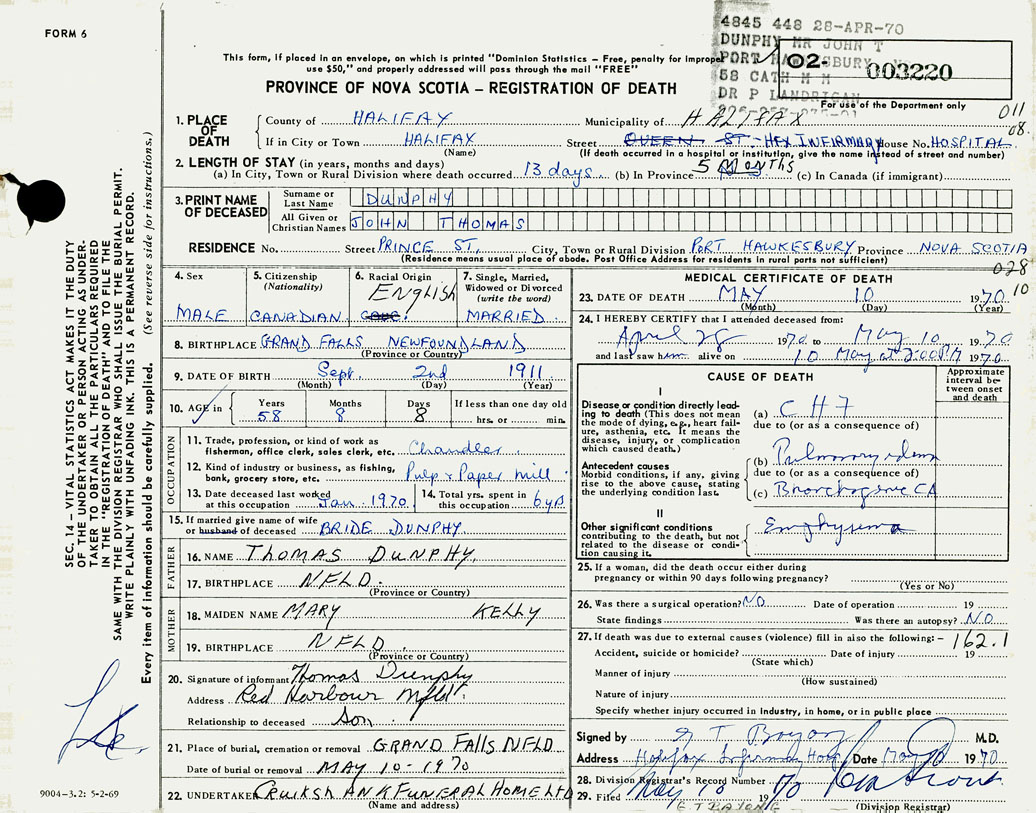 FORM 6
4845 448 28-APR-70
DUNPHY MR JOHN T
PORT HAWKESBURY
58 CATH M M
DR P LANDRIGAN
02- 003220
For use of the Department only
This form, if placed in an envelope, on which is printed "Dominion Statistics – Free, penalty for improper
use $50," and properly addressed will pass through the mail "FREE"
PROVINCE OF NOVA SCOTIA – REGISTRATION OF DEATH
011
08
1. PLACE OF DEATH
County of HALIFAX Municipality of HALIFAX
If in City or Town HALIFAX Street QUEEN ST. HFX INFIRMARY House No. HOSPITAL
(Name) (If death occurred in a hospital or institution, give the name instead of street and number)
2. LENGTH OF STAY (in years, months and days)
(a) In City, Town or Rural Division where death occurred 13 days (b) In Province 5 MONTHS (c) In Canada (if immigrant)
3. PRINT NAME OF DECEASED
Surname or Last Name DUNPHY
All Given or Christian Names JOHN THOMAS
RESIDENCE No. Street PRINCE ST. City, Town or Rural Division PORT HAWKESBURY Province NOVA SCOTIA
(Residence means usual place of abode. Post Office Address for residents in rural parts not sufficient)
028
10
4. Sex MALE
5. Citizenship (Nationality) CANADIAN
6. Racial Origin ENGLISH
7. Single, Married, Widowed or Divorced (write the word) MARRIED
8. BIRTHPLACE GRAND FALLS NEWFOUNDLAND
(Province or Country)
9. DATE OF BIRTH Sept. 2nd 1911
(Month) (Day) (Year)
10. AGE in Years 58 Months 8 Days 8 If less than one day old hrs. or min.
OCCUPATION
11. Trade, profession, or kind of work as
fisherman, office clerk, sales clerk, etc. Chandler
12. Kind of industry or business, as fishing,
bank, grocery store, etc. Pulp & Paper Mill
13. Date deceased last worked
at this occupation Jan. 1970
14. Total yrs. spent in
this occupation 6 yrs
15. If married give name of wife
or husband of deceased BRIDE DUNPHY
FATHER
16. NAME THOMAS DUNPHY
17. BIRTHPLACE NFLD.
(Province or Country)
MOTHER
18. MAIDEN NAME MARY KELLY
19. BIRTHPLACE NFLD.
(Province or Country)
20. Signature of informant Thomas Dunphy
Address Red Harbour Nfld.
Relationship to deceased Son
21. Place of burial, cremation or removal GRAND FALLS NFLD
Date of burial or removal MAY 10-1970
22. UNDERTAKER CRUIKSHANK FUNERAL HOME LTD
(Name and address)
MEDICAL CERTIFICATE OF DEATH
23. DATE OF DEATH MAY 10 1970
(Month) (Day) (Year)
24. I HEREBY CERTIFY that I attended deceased from:
April 28 1970 to May 10 1970
and last saw him alive on 10 May at 2:00 PM 1970
CAUSE OF DEATH
Approximate interval between onset and death
I
Disease or condition directly leading to death (This does not mean the mode of dying, e.g., heart failure, asthenia, etc. It means the disease, injury, or complication which caused death.)
(a) CHF
due to (or as a consequence of)
Antecedent causes
Morbid conditions, if any, giving rise to the above cause, stating the underlying condition last.
(b) Pulmonary edema
due to (or as a consequence of)
(c) Bronchogenic CA
II
Other significant conditions
contributing to the death, but not related to the disease or condition causing it.
Emphysema
25. If a woman, did the death occur either during
pregnancy or within 90 days following pregnancy?
(Yes or No)
26. Was there a surgical operation? NO Date of operation 19
State findings Was there an autopsy? NO
27. If death was due to external causes (violence) fill in also the following: – 162.1
Accident, suicide or homicide? Date of injury 19
(State which)
Manner of injury
(How sustained)
Nature of injury
Specify whether injury occurred in industry, in home, or in public place
Signed by M.D.
Address Halifax Infirmary Hosp Date May 10 1970
28. Division Registrar's Record Number
29. Filed May 10 1970
(Division Registrar)
SEC. 14 – VITAL STATISTICS ACT MAKES IT THE DUTY
OF THE UNDERTAKER OR PERSON ACTING AS UNDER-
TAKER TO OBTAIN ALL THE PARTICULARS REQUIRED
IN THE "REGISTRATION OF DEATH" AND TO FILE THE
SAME WITH THE DIVISION REGISTRAR WHO SHALL ISSUE THE BURIAL PERMIT.
WRITE PLAINLY WITH UNFADING INK. THIS IS A PERMANENT RECORD.
Every item of information should be carefully supplied. (See reverse side for instructions.)
9004-3.2: 5-2-69